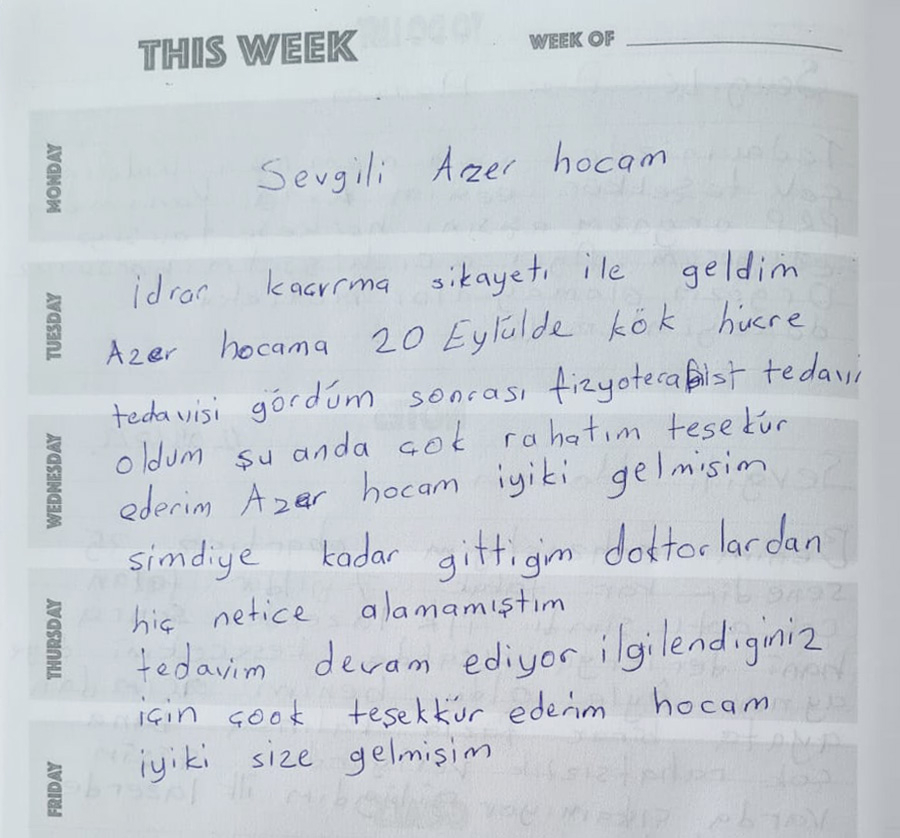 THIS WEEK
WEEK OF
MONDAY
Sevgili Azer hocam
TUESDAY
idrar kaçırma sikayeti ile geldim
Azer hocama 20 Eylülde kök hücre
tedavisi gördüm sonrası fizyoterapist tedavi
WEDNESDAY
oldum şu anda çok rahatım teşekür
ederim Azer hocam iyiki gelmişim
simdiye kadar gittigim doktorlardan
THURSDAY
hiç netice alamamıştım
tedavim devam ediyor ilgilendiginiz
için çook teşekkür ederim hocam
FRIDAY
iyiki size gelmişim